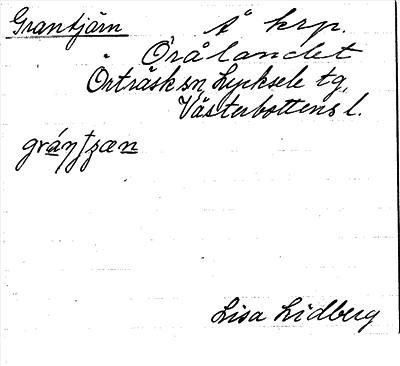 Grantjärn Å krp.
Örålandet
Örträsk sn, Lycksele tg,
Västerbottens l.
Lisa Lidberg